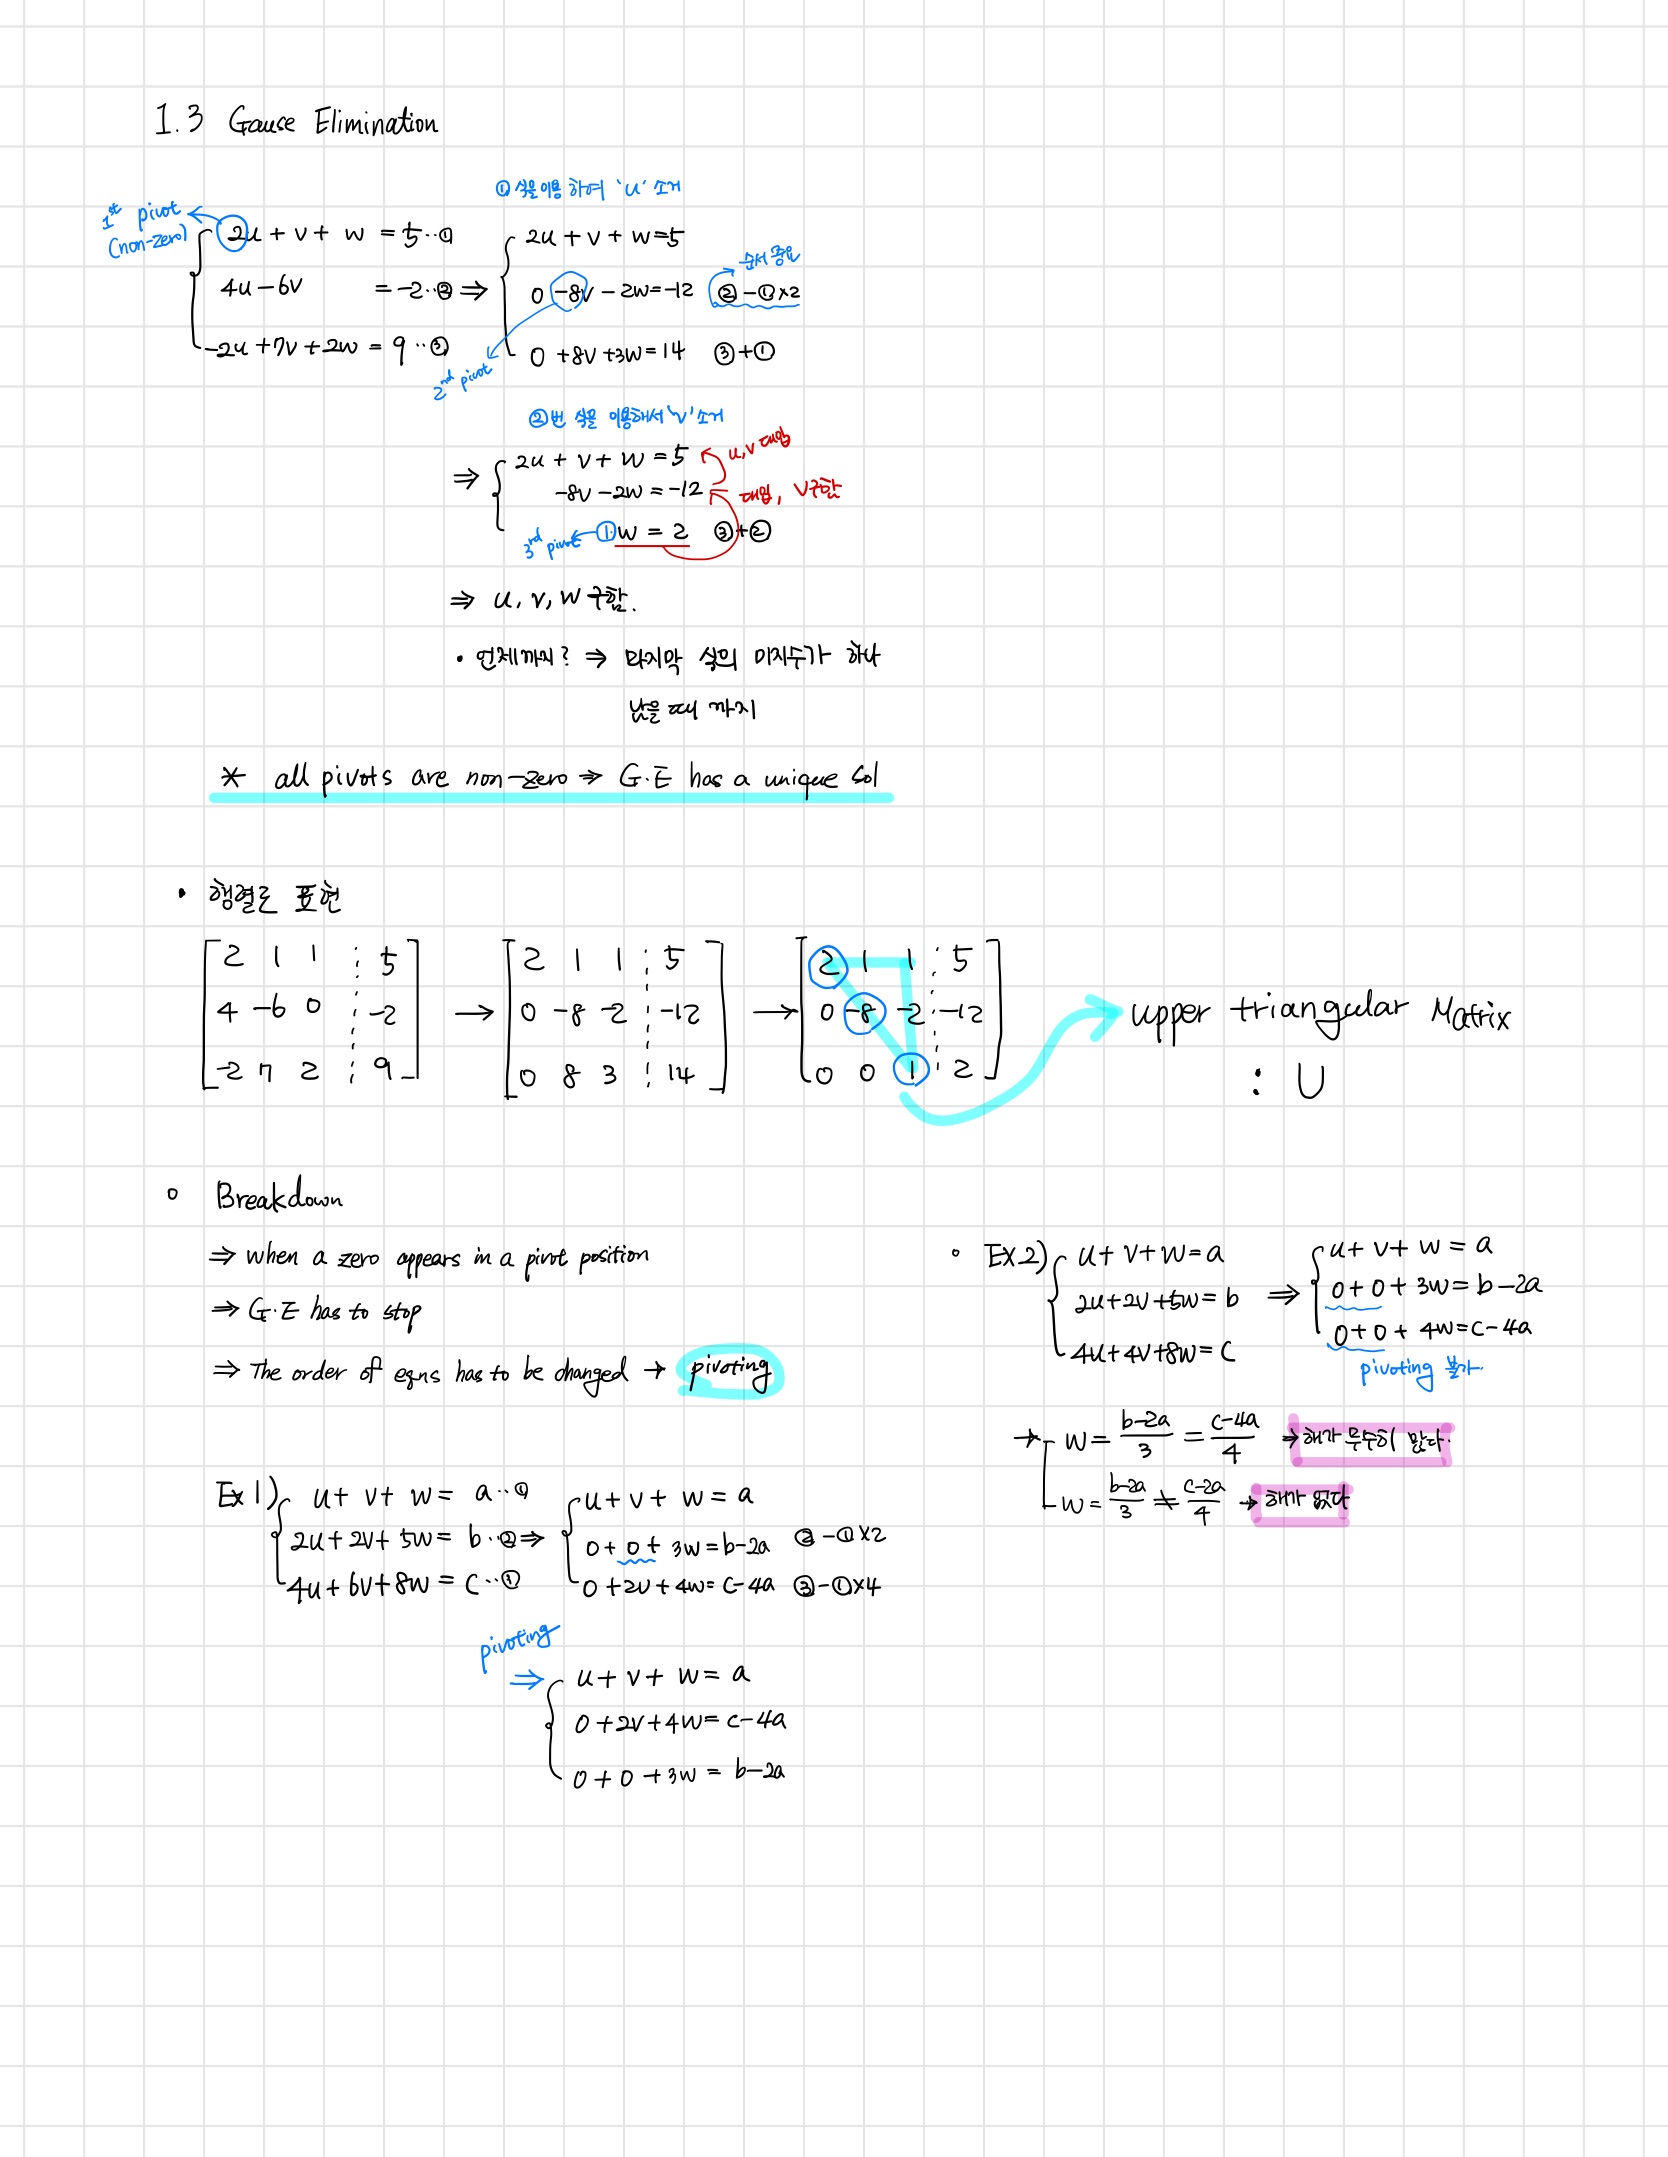 1.3 Gause Elimination
①식을 이용하여 'u' 소거
1st pivot
(non-zero)
2u + v + w = 5 ··①
4u - 6v = -2 ··② ⇒
-2u + 7v + 2w = 9 ··③
2u + v + w = 5
0 -8v - 2w = -12 ② - ① × 2
순서 중요
0 + 8v + 3w = 14 ③ + ①
2nd pivot
②번 식을 이용해서 'v' 소거
⇒ 2u + v + w = 5
u, v 대입
-8v - 2w = -12
대입, v구함
3rd pivot ← 1·w = 2 ③ + ②
⇒ u, v, w 구함.
• 언제까지? ⇒ 마지막 식의 미지수가 하나
남을 때 까지
* all pivots are non-zero ⇒ G.E has a unique sol
• 행렬로 표현
2 1 1 ⋮ 5
4 -6 0 ⋮ -2
-2 7 2 ⋮ 9
→
2 1 1 ⋮ 5
0 -8 -2 ⋮ -12
0 8 3 ⋮ 14
→
2 1 1 ⋮ 5
0 -8 -2 ⋮ -12
0 0 1 ⋮ 2
upper triangular Matrix
: U
○ Breakdown
⇒ when a zero appears in a pivot position
⇒ G.E has to stop
⇒ The order of eqns has to be changed → pivoting
Ex 1)
u + v + w = a ··①
2u + 2v + 5w = b ··② ⇒
4u + 6v + 8w = c ··③
u + v + w = a
0 + 0 + 3w = b-2a ② - ① × 2
0 + 2v + 4w = c-4a ③ - ① × 4
pivoting
⇒ u + v + w = a
0 + 2v + 4w = c-4a
0 + 0 + 3w = b-2a
○ Ex 2)
u + v + w = a
2u + 2v + 5w = b ⇒
4u + 4v + 8w = c
u + v + w = a
0 + 0 + 3w = b-2a
0 + 0 + 4w = c-4a
pivoting 불가.
→ w = b-2a/3 = c-4a/4 → 해가 무수히 많다.
w = b-2a/3 ≠ c-2a/4 → 해가 없다